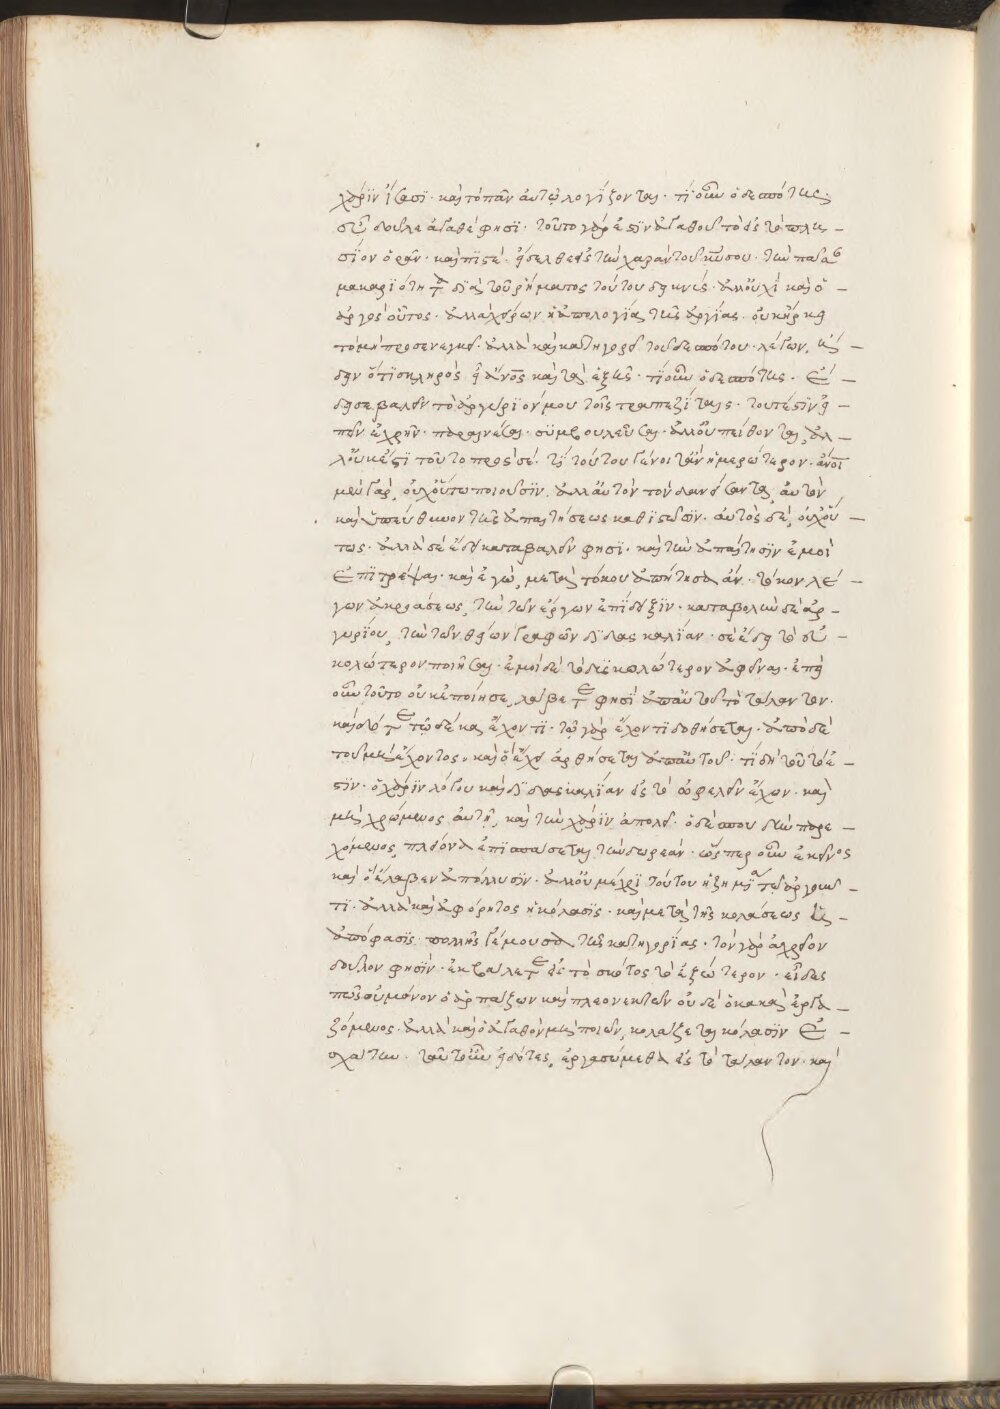 χάριν ἴσασι· καὶ τὸ πᾶν αὐτῷ λογίζονται· τί οὖν ὁ δεσπότης·
εὖ δοῦλε ἀγαθέ φησι· τοῦτο γάρ ἐστιν ἀγαθοῦ τὸ εἰς τὸν πλη–
σίον ὁρᾶν· καὶ πιστέ· εἴσελθε εἰς τὴν χαρὰν τοῦ κυ̅ σου· τὴν πᾶσαν
μακαριότητα διὰ τοῦ ῥήματος τούτου δεικνύς· ἀλλ' οὐχὶ καὶ ὁ –
ἀργὸς οὗτος· ἀλλὰ χείρων ἡ ἀπολογία τῆς ἀργίας. οὐκ ἤρκει
τὸ μὴ προσενεγκεῖν· ἀλλὰ καὶ κατηγορεῖ τοῦ δεσπότου· λέγων, ᾔ –
δειν ὅτι σκληρὸς εἶ ἄνο̅ς καὶ τὰ ἑξῆς· τί οὖν ὁ δεσπότης· ἔ –
δει σε βαλεῖν τὸ ἀργύριόν μου τοῖς τραπεζίταις· τουτέστιν εἰ –
πεῖν ἐχρῆν· παραινέσαι· συμβουλεῦσαι· ἀλλ' οὐ πείθονται, ἀλ –
λ' οὐκ ἔστι τοῦτο πρὸς σέ· τί τούτου γένοιτ' ἂν ἡμερώτερον· ἄνο̅ι
μὲν γὰρ, οὐχ οὕτω ποιοῦσιν, ἀλλ' αὐτὸν τὸν δανείσαντα, αὐτὸν
καὶ ὑπεύθυνον τῆς ἀπαιτήσεως καθιστῶσιν· αὐτὸς δέ, οὐχ οὕ –
τως· ἀλλὰ σὲ ἔδει καταβαλεῖν φησι· καὶ τὴν ἀπαίτησιν ἐμοὶ
ἐπιτρέψαι· καὶ ἐγὼ, μετὰ τόκου ἀπῄτησα ἄν· τόκον λέ –
γων ἀκροάσεως, τὴν τῶν ἔργων ἐπίδειξιν· καταβολὴν δὲ ἀρ –
γυρίου, τὴν τῶν θείων γραφῶν διδασκαλίαν· σὲ ἔδει τὸ εὐ –
κολώτερον ποιῆσαι· ἐμοὶ δὲ τὸ δυσκολώτερον ἀφεῖναι· ἐπεὶ
οὖν τοῦτο οὐκ ἐποίησε, λάβετε φησὶ ἀπ' αὐτοῦ τὸ τάλαντον·
καὶ δότε τῷ δέκα ἔχοντι· τῷ γὰρ ἔχοντι δοθήσεται· ἀπὸ δὲ
τοῦ μὴ ἔχοντος, καὶ ὃ ἔχει ἀρθήσεται ἀπ' αὐτοῦ· τί δὴ τοῦτό ἐ –
στιν· ὁ χάριν λόγου καὶ διδασκαλίαν εἰς τὸ ὠφελεῖν ἔχων· καὶ
μὴ χρώμενος αὐτῇ, καὶ τὴν χάριν ἀπολεῖ· ὁ δὲ σπουδὴν παρε –
χόμενος, πλείονα ἐπισπάσεται τὴν δωρεάν· ὥσπερ οὖν ἐκεῖνος
καὶ ὃ ἔλαβεν ἀπόλλυσιν· ἀλλ' οὐ μέχρι τούτου ἡ ζημία τῷ ἀργοῦν –
τι· ἀλλὰ καὶ ἀφόρητος ἡ κόλασις· καὶ μετὰ τῆς κολάσεως ἡ –
ἀπόφασις πολλῆς γέμουσα τῆς κατηγορίας· τὸν γὰρ ἀχρεῖον
δοῦλον φησὶν· ἐκβάλετε εἰς τὸ σκότος τὸ ἐξώτερον· εἶδες
πῶς οὐ μόνον ὁ ἁρπάζων καὶ πλεονεκτῶν οὐδὲ ὁ κακὰ ἐργα –
ζόμενος· ἀλλὰ καὶ ὁ ἀγαθὸν μὴ ποιῶν, κολάζεται κόλασιν ἐ –
σχάτην· ταῦτ' οὖν εἰδότες, ἐργασώμεθα εἰς τὸ τάλαντον· καὶ